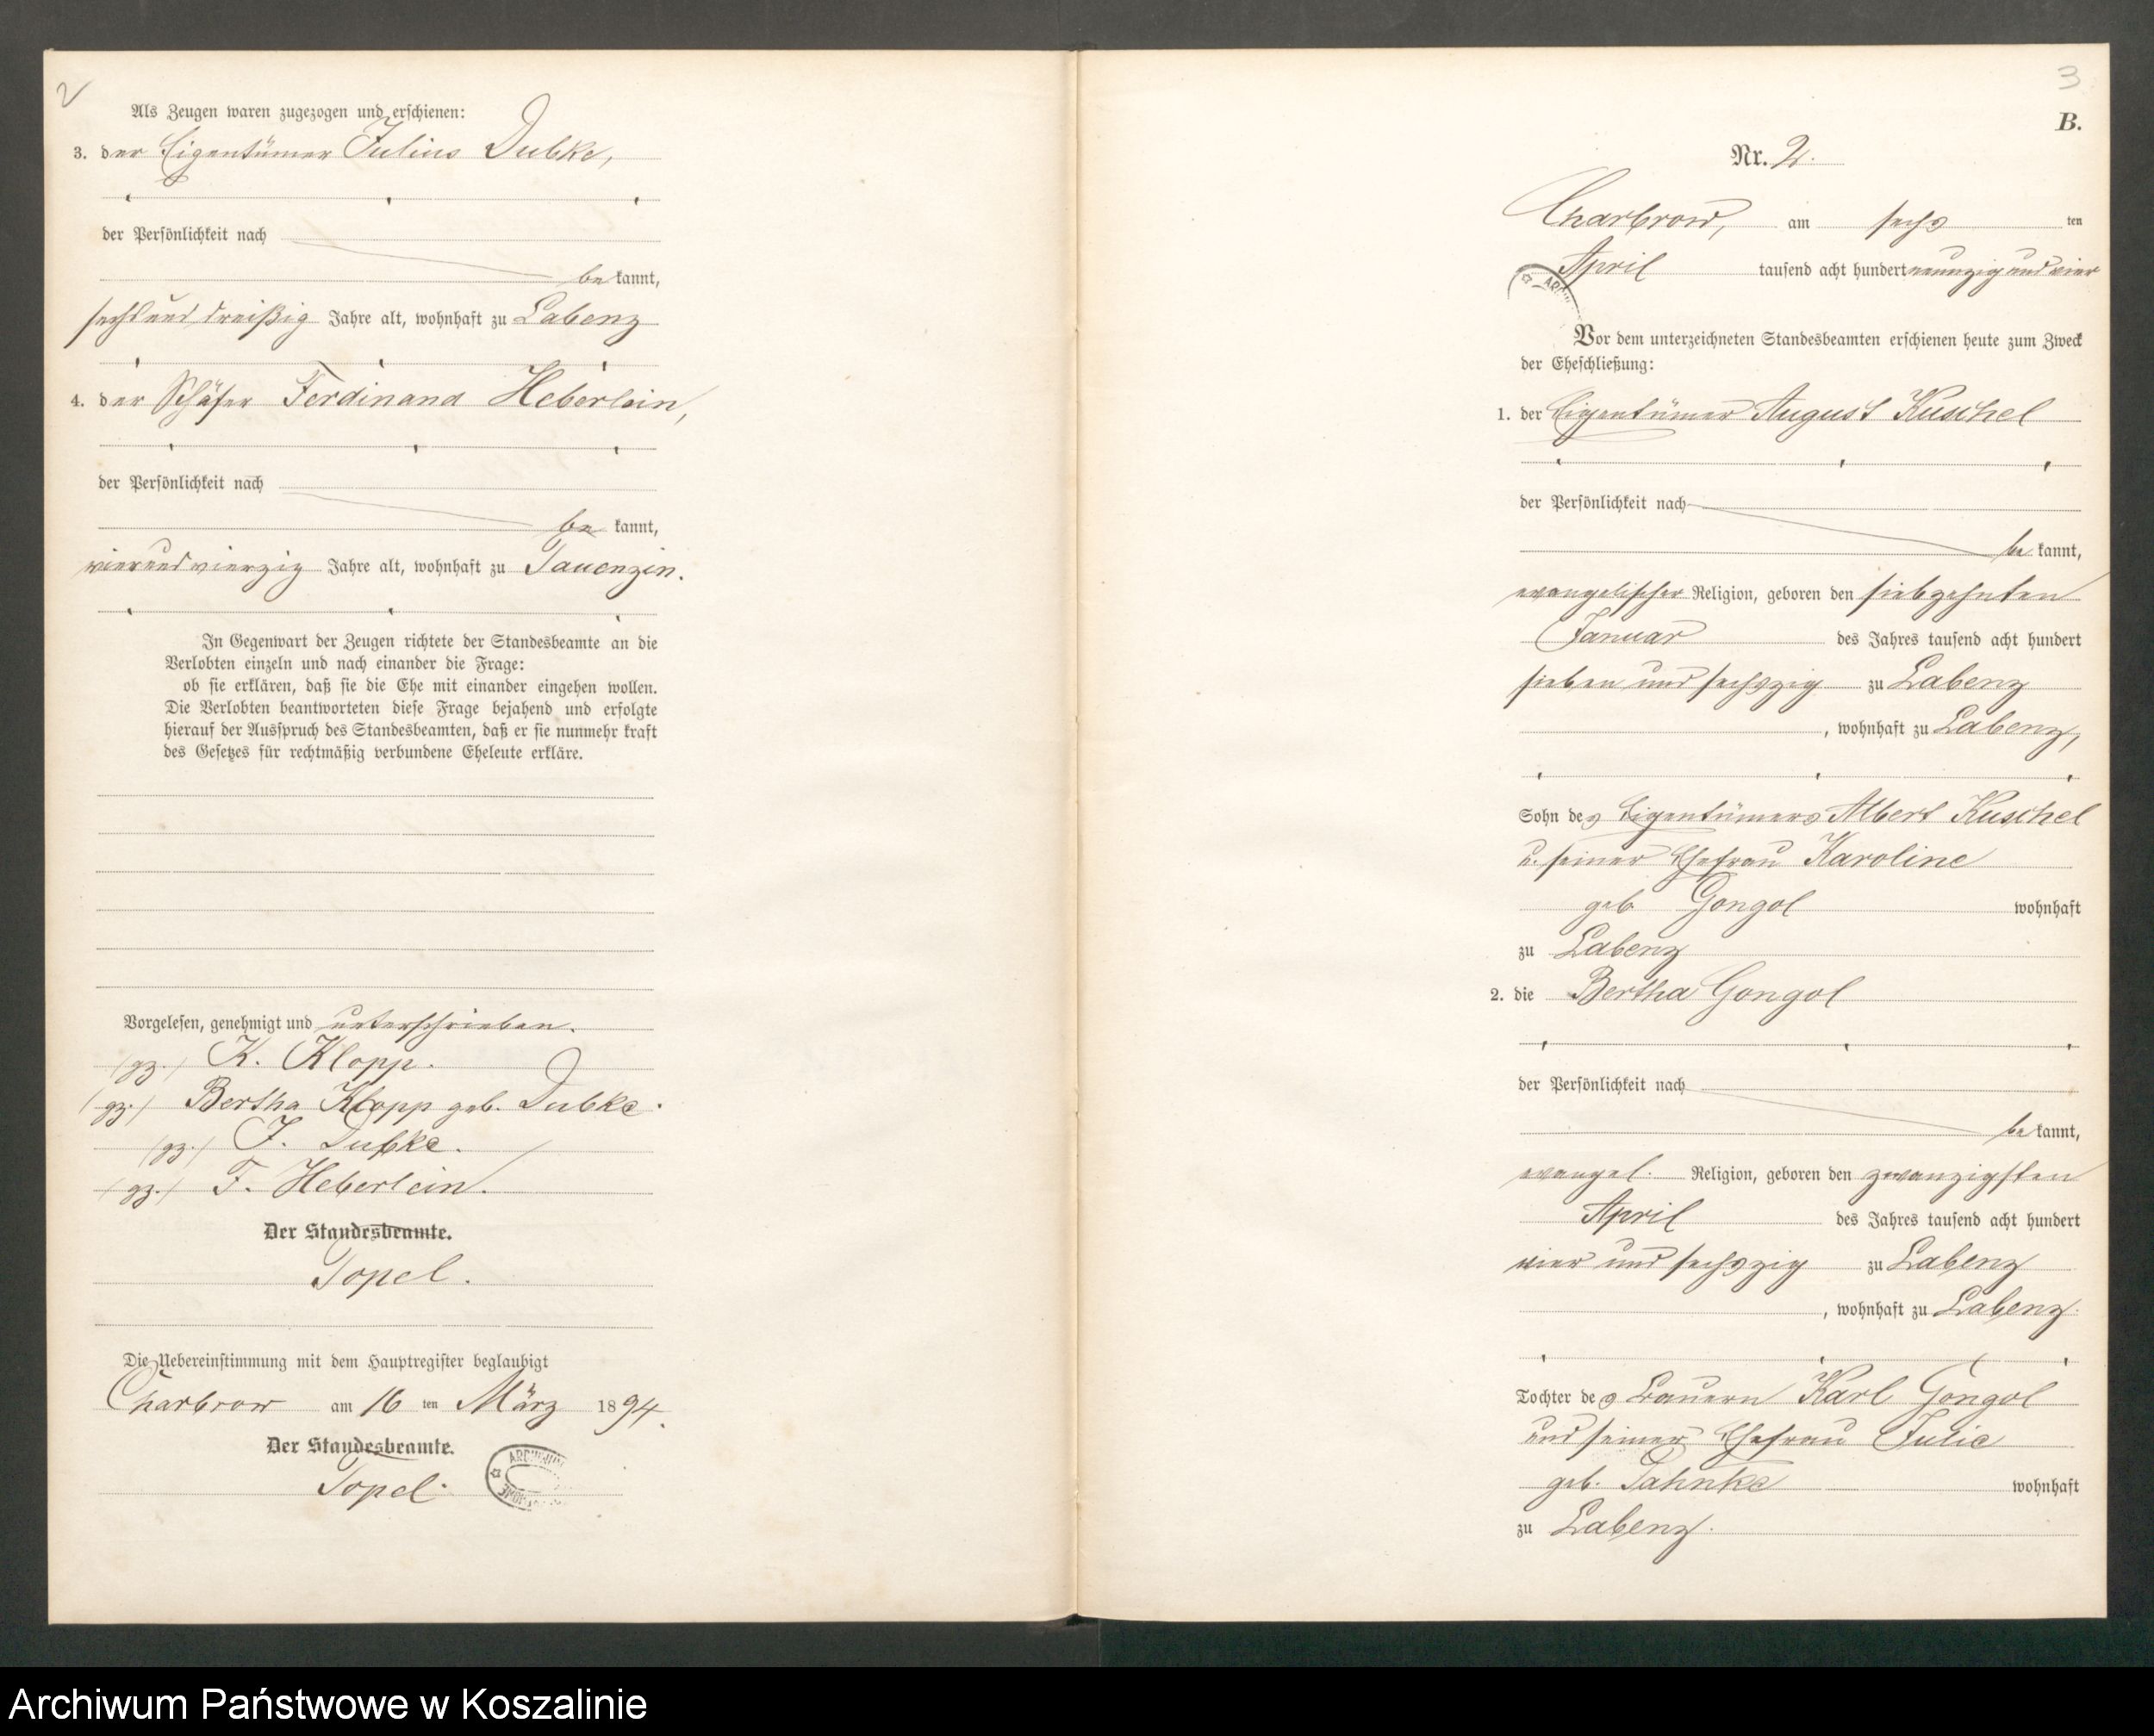 2
Als Zeugen waren zugezogen und erschienen:
3. der Eigentümer Julius Dubke,
der Persönlichkeit nach
be kannt,
sechsund dreißig Jahre alt, wohnhaft zu Labenz
4. der Schäfer Ferdinand Heberlein,
der Persönlichkeit nach
be kannt,
vierundvierzig Jahre alt, wohnhaft zu Tauenzin.
In Gegenwart der Zeugen richtete der Standesbeamte an die
Verlobten einzeln und nach einander die Frage:
ob sie erklären, daß sie die Ehe mit einander eingehen wollen.
Die Verlobten beantworteten diese Frage bejahend und erfolgte
hierauf der Ausspruch des Standesbeamten, daß er sie nunmehr kraft
des Gesetzes für rechtmäßig verbundene Eheleute erkläre.
Vorgelesen, genehmigt und unterschrieben.
(gz.) K. Klopp.
(gz.) Bertha Klopp geb. Dubke.
(gz.) J. Dubke.
(gz.) F. Heberlein.
Der Standesbeamte.
Topel.
Die Uebereinstimmung mit dem Hauptregister beglaubigt
Charbrow am 16 ten März 1894.
Der Standesbeamte.
Topel.
3
B.
Nr. 2.
Charbrow, am sechs ten
April tausend acht hundert neunzig und vier
Vor dem unterzeichneten Standesbeamten erschienen heute zum Zweck
der Eheschließung:
1. der Eigentümer August Kuschel
der Persönlichkeit nach
be kannt,
evangelischer Religion, geboren den siebzehnten
Januar des Jahres tausend acht hundert
sieben und sechszig zu Labenz
, wohnhaft zu Labenz,
Sohn des Eigentümers Albert Kuschel
u. seiner Ehefrau Karoline
geb Gongol wohnhaft
zu Labenz
2. die Bertha Gongol
der Persönlichkeit nach
be kannt,
evangel. Religion, geboren den zwanzigsten
April des Jahres tausend acht hundert
vier und sechszig zu Labenz
, wohnhaft zu Labenz.
Tochter des Bauern Karl Gongol
und seiner Ehefrau Julie
geb. Pahnke wohnhaft
zu Labenz.
Archiwum Państwowe w Koszalinie